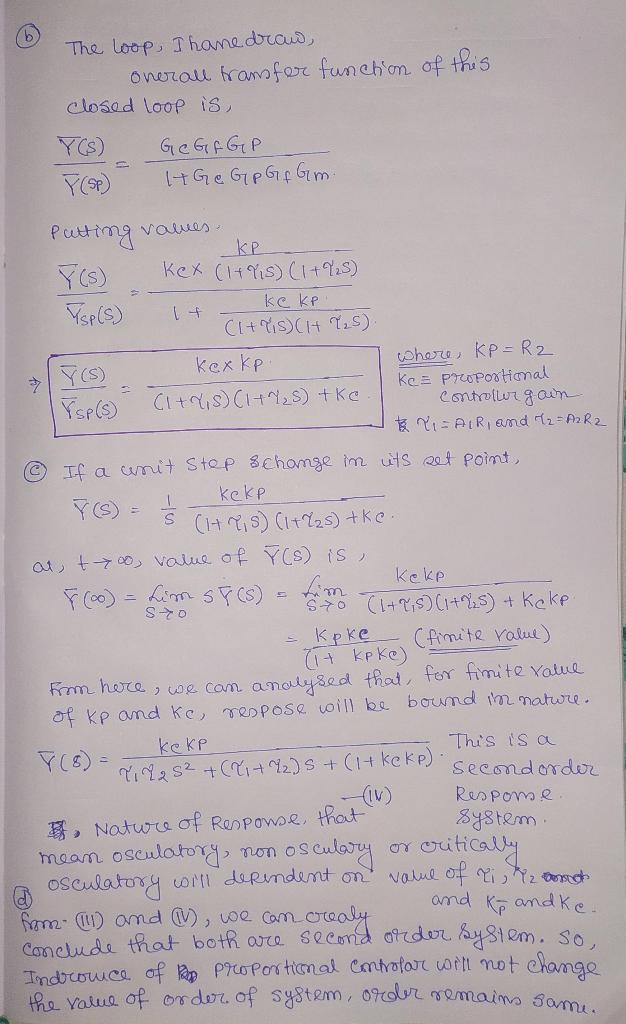 (b) The loop, I have draw,
overall transfer function of this
closed loop is,
Ȳ(S) / Ȳ(SP) = GcGfGp / 1+GcGpGfGm
Putting values.
Ȳ(S) / Ȳsp(S) = Kc x KP/(1+τ1S)(1+τ2S) / 1 + Kc KP/(1+τ1S)(1+τ2S)
⇒ Ȳ(S) / Ȳsp(S) = Kc x KP / (1+τ1S)(1+τ2S) + Kc
where, KP = R2
Kc = Proportional
controller gain
& τ1 = A1R1 and τ2 = A2R2
(c) If a unit step change in its set point,
Ȳ(S) = 1/S KcKP / (1+τ1S)(1+τ2S) + Kc.
at, t→∞, value of Ȳ(S) is,
Ȳ(∞) = Lim S→0 SȲ(S) = Lim S→0 KcKP / (1+τ1S)(1+τ2S) + KcKP
= KPKc / (1+ KPKc) (finite value)
From here, we can analysed that, for finite value
of KP and Kc, respose will be bound in nature.
Ȳ(S) = KcKP / τ1τ2S² + (τ1+τ2)S + (1+KcKP). This is a
second order
—(IV) Response
System.
, Nature of Response, that
mean osculatory, non osculary or critically
osculatory will dependent on value of τ1, τ2
and KP and Kc.
(d) from - (III) and (IV), we can crealy
conclude that both are second order system. So,
Indrouce of proportional controlar will not change
the value of order of system, order remains same.